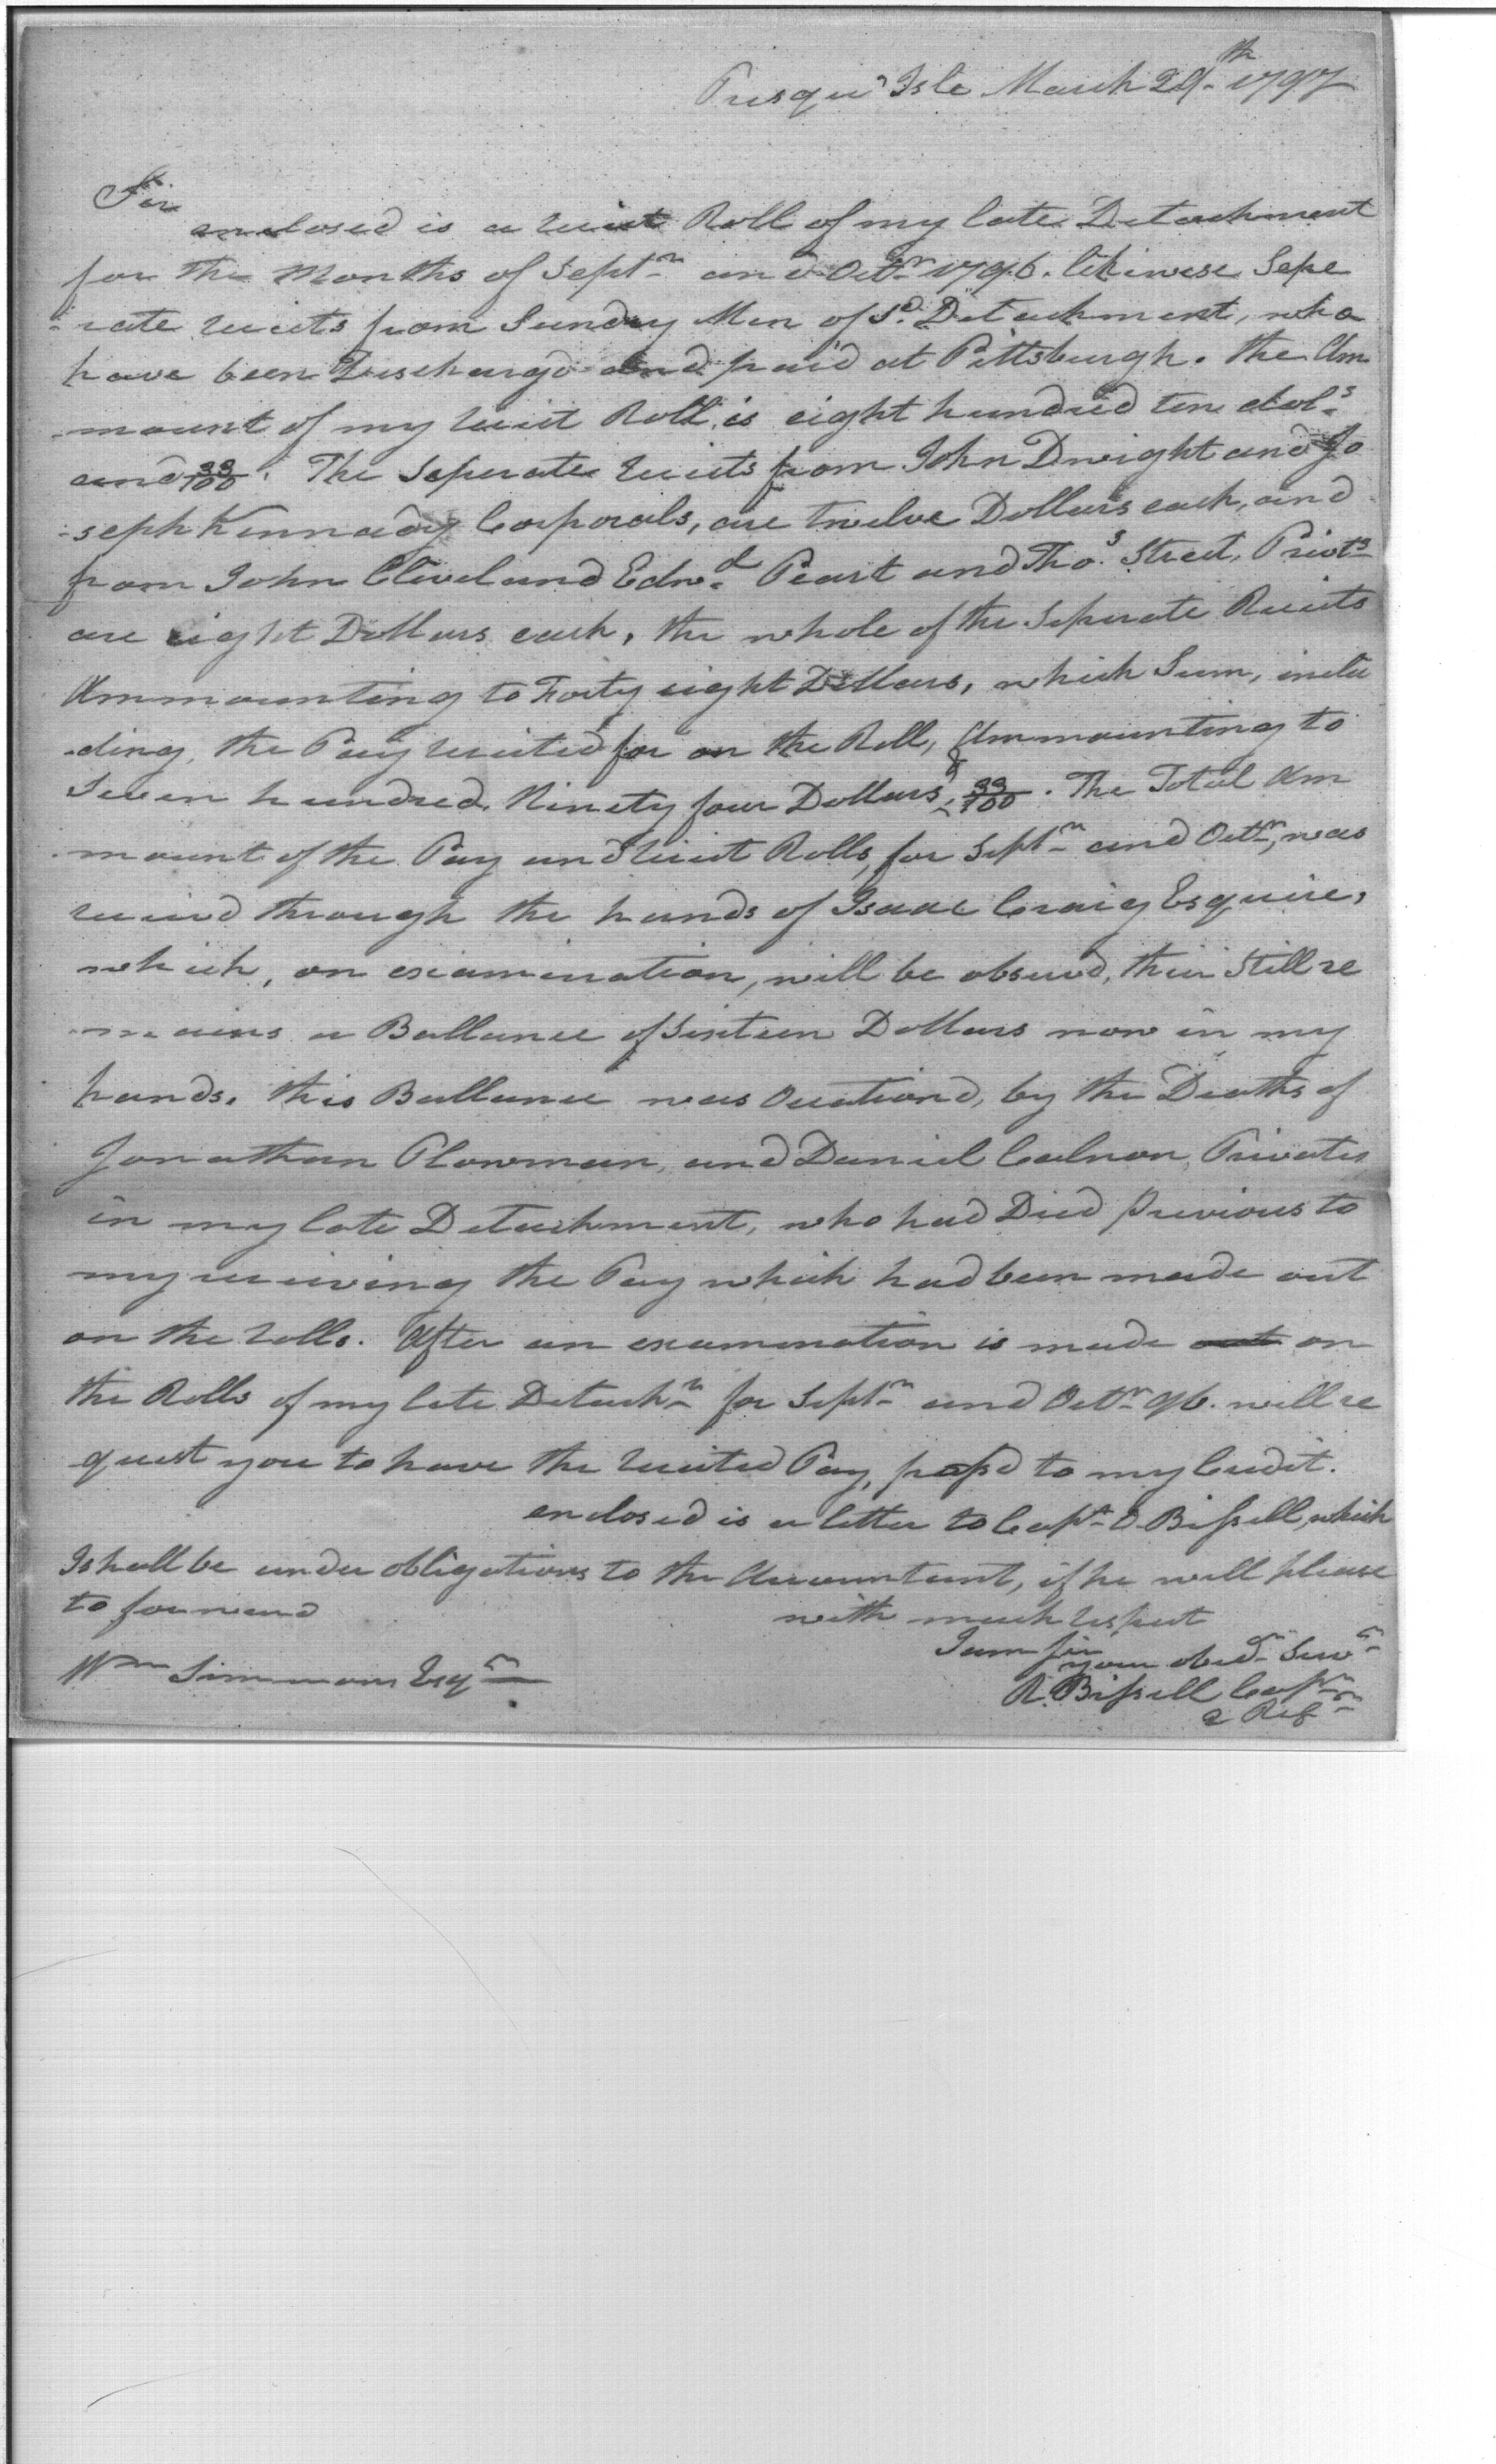 Presqu' Isle March 29th 1797
Sir
enclosed is a receit Roll of my late Detachment
for the Months of Septr and Octr 1796. likewise Sepe
-rate receits from Sundry Men of Sd. Detachment, who
have been Dischargd and paid at Pittsburgh. the Am
-mount of my receit Roll, is eight hundred ten dols
and 33/100. The Seperate receits from John Dwight and Jo
-seph Kennady Corporals, are twelve Dollars each, and
from John Cleveland Edwd Peart and Thos. Street, Privts
are eight Dollars each, the whole of the Seperate Receits
Ammounting to Forty eight Dollars, which Sum, inclu
-ding, the Pay receited for on the Roll, Ammounting to
Seven hundred, Ninety four Dollars & 33/100. The Total Am
-mount of the Pay and receit Rolls, for Septr and Octr, was
receivd through the hands of Isaac Craig Esquire,
which, on examination, will be observd, their Still re
-mains a Ballance of Sixteen Dollars now in my
hands. this Ballance was Ocationd, by the Deaths of
Jonathan Plowman, and Daniel Colnon, Privates
in my late Detachment, who had Died previous to
my receiving the Pay which had been made out
on the rolls. After an examination is made out on
the Rolls of my late Detacht for Septr and Octr 96. will re
quest you to have the receited Pay, passd to my Credit.
enclosed is a letter to Capt D Bissell, which
I shall be under obligations to the Accountant, if he will please
to forward
with much respect
I am Sir
your obedt Servt
R. Bissell Capt
2 Regt
Wm Simmons Esqr